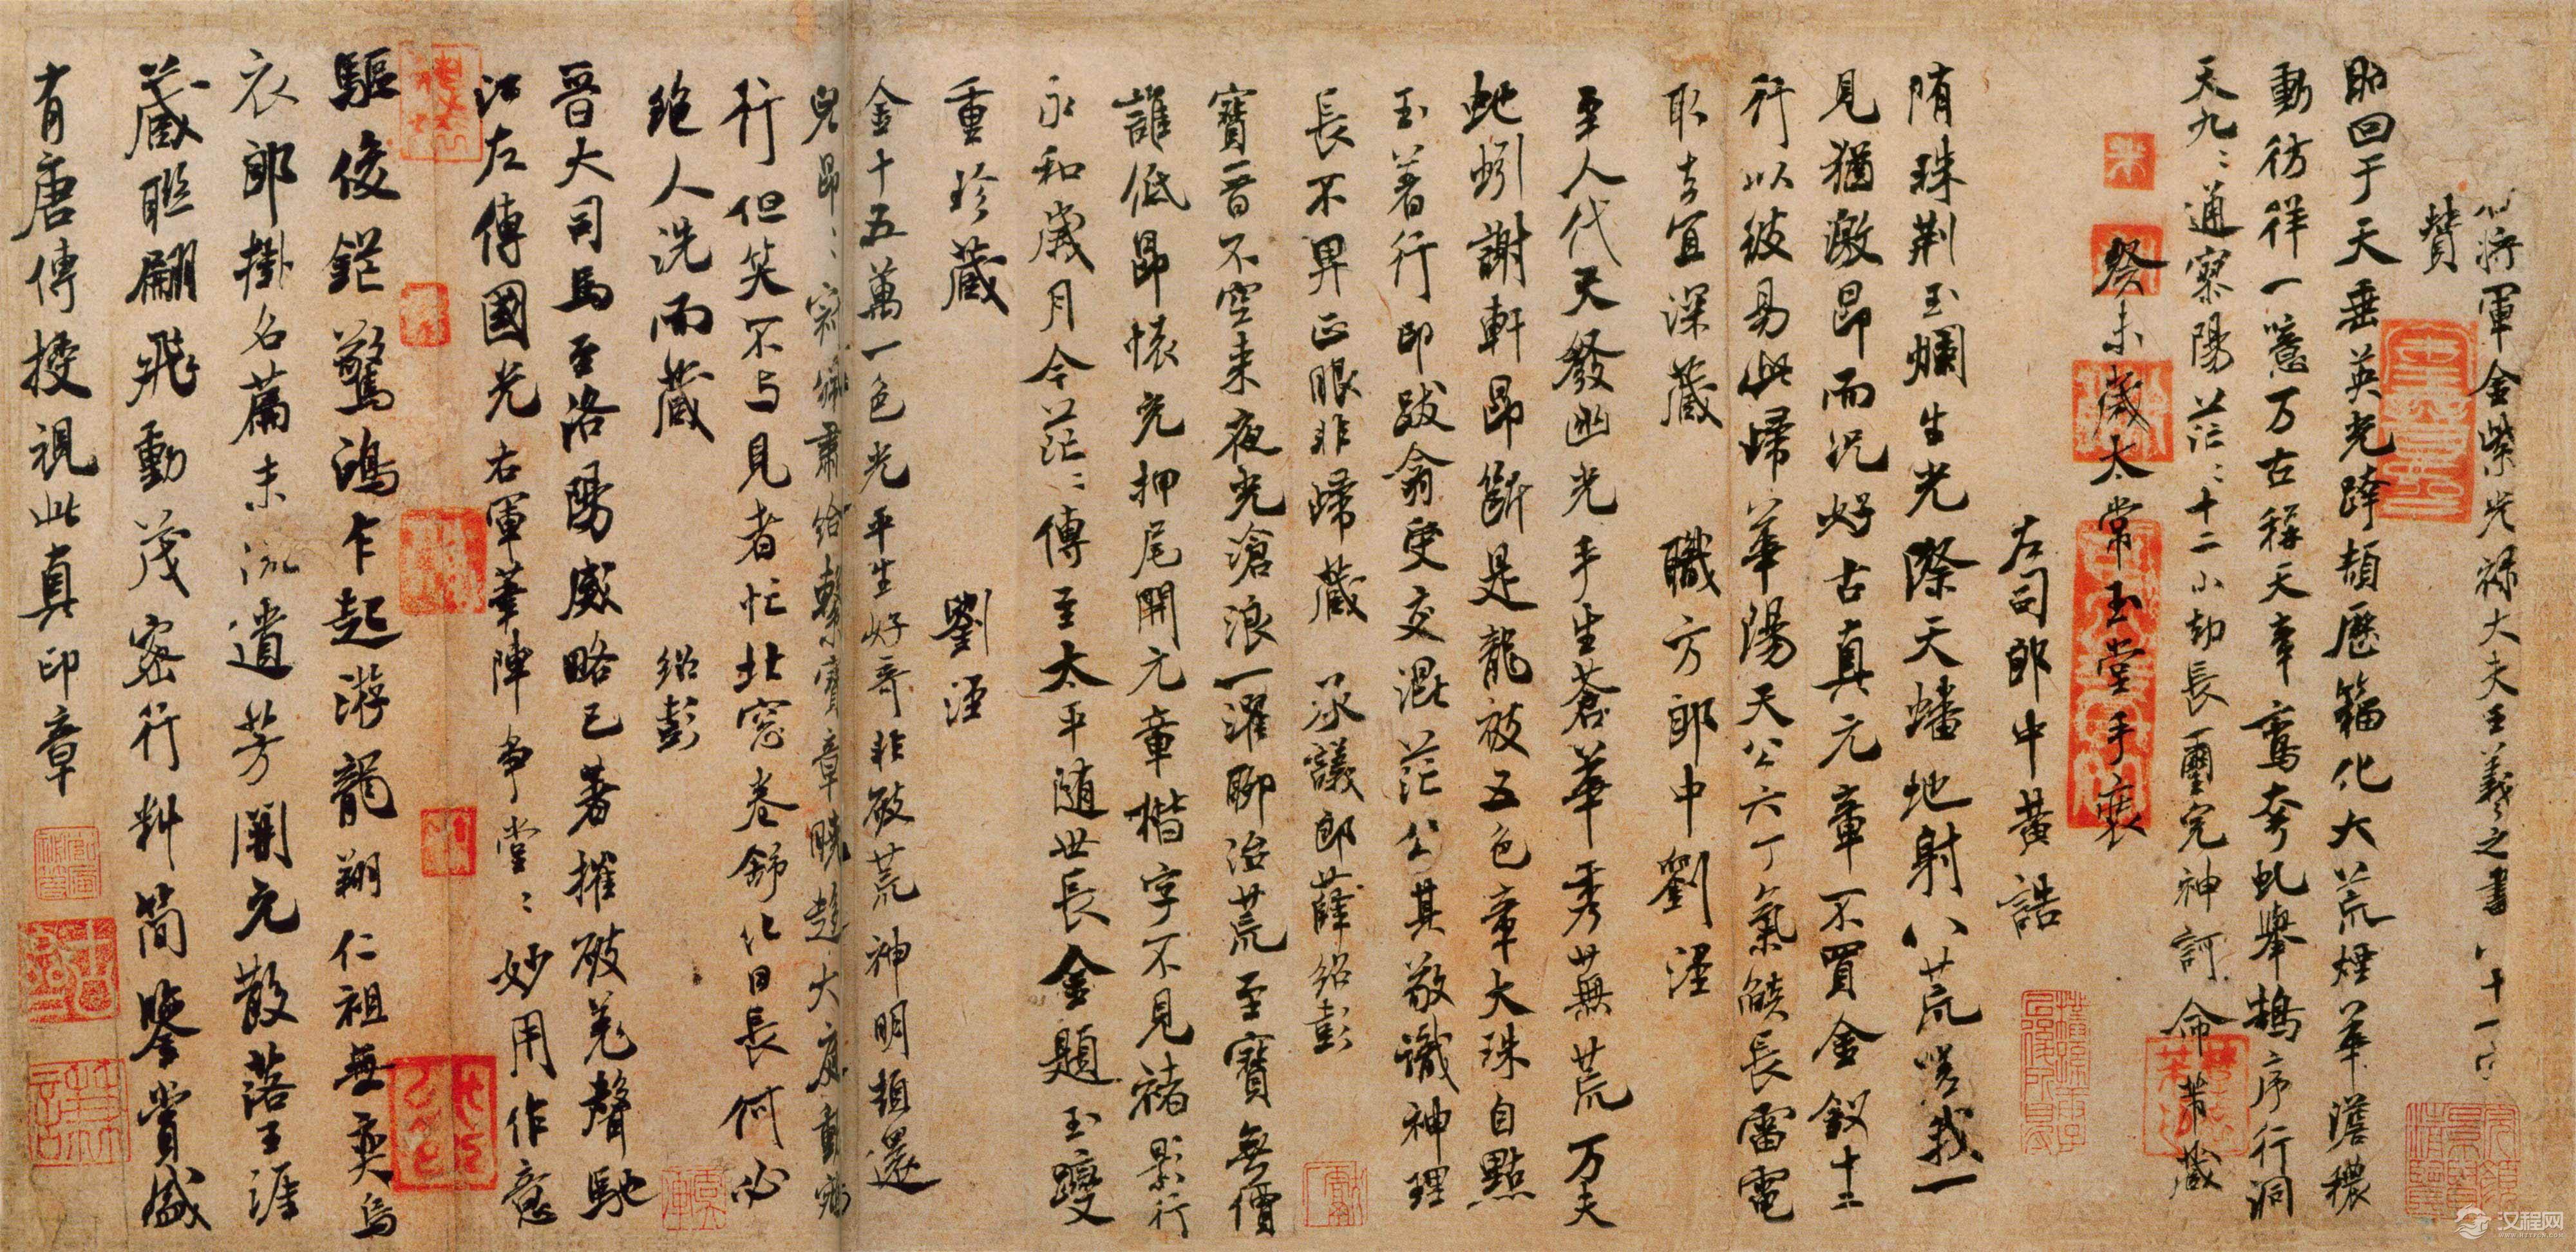 将軍金紫光禄大夫王羲之書
賛
昭回于天垂英光跨頡歷籀化大荒煙華澹穠
動彷徉一噫万古稱天章鸞夸虬舉鵠序行洞
天九ミ通寥陽茫ミ十二小劫長璽完神訶命芾藏
癸未歲太常玉堂手裝
左司郎中黃誥
隋珠荆玉爛生光際天蟠地射八荒嗟我一
見猶激昂而況好古真元章不買金釵十二
行以彼易此歸華陽天公六丁氣燄長雷電
取去宜深藏 職方郎中劉涇
至人代天發幽光手生蒼華秀蕪荒万夫
虵蚓謝軒昂斷是龍被五色章大珠自點
玉著行印跋龠受交混茫公其敬識神理
長不畀正眼非歸藏 承議郎薛紹彭
寶晋不空来夜光滄浪一濯聊治荒至寶無價
誰低昂懐充押尾開元章楷字不見褚影行
永和歲月今茫ミ傳至太平随世長金題玉躞
重珍藏 劉涇
金十五萬一色光平生好奇非破荒神明頓還
行但笑不与見者忙北窓卷舒化日長何必
绝人洗而藏 紹彭
晋大司馬至洛陽威略已著摧破羌聲馳
江左傳國光右軍筆陣争堂ミ妙用作意
驅俊鋩驚鴻乍起游龍翔仁祖無奕烏
衣郎掛名篇末流遺芳開元散落王涯
藏聯翩飛動茂密行料简鑒賞盛
有唐傳授視此真印章
汉程网